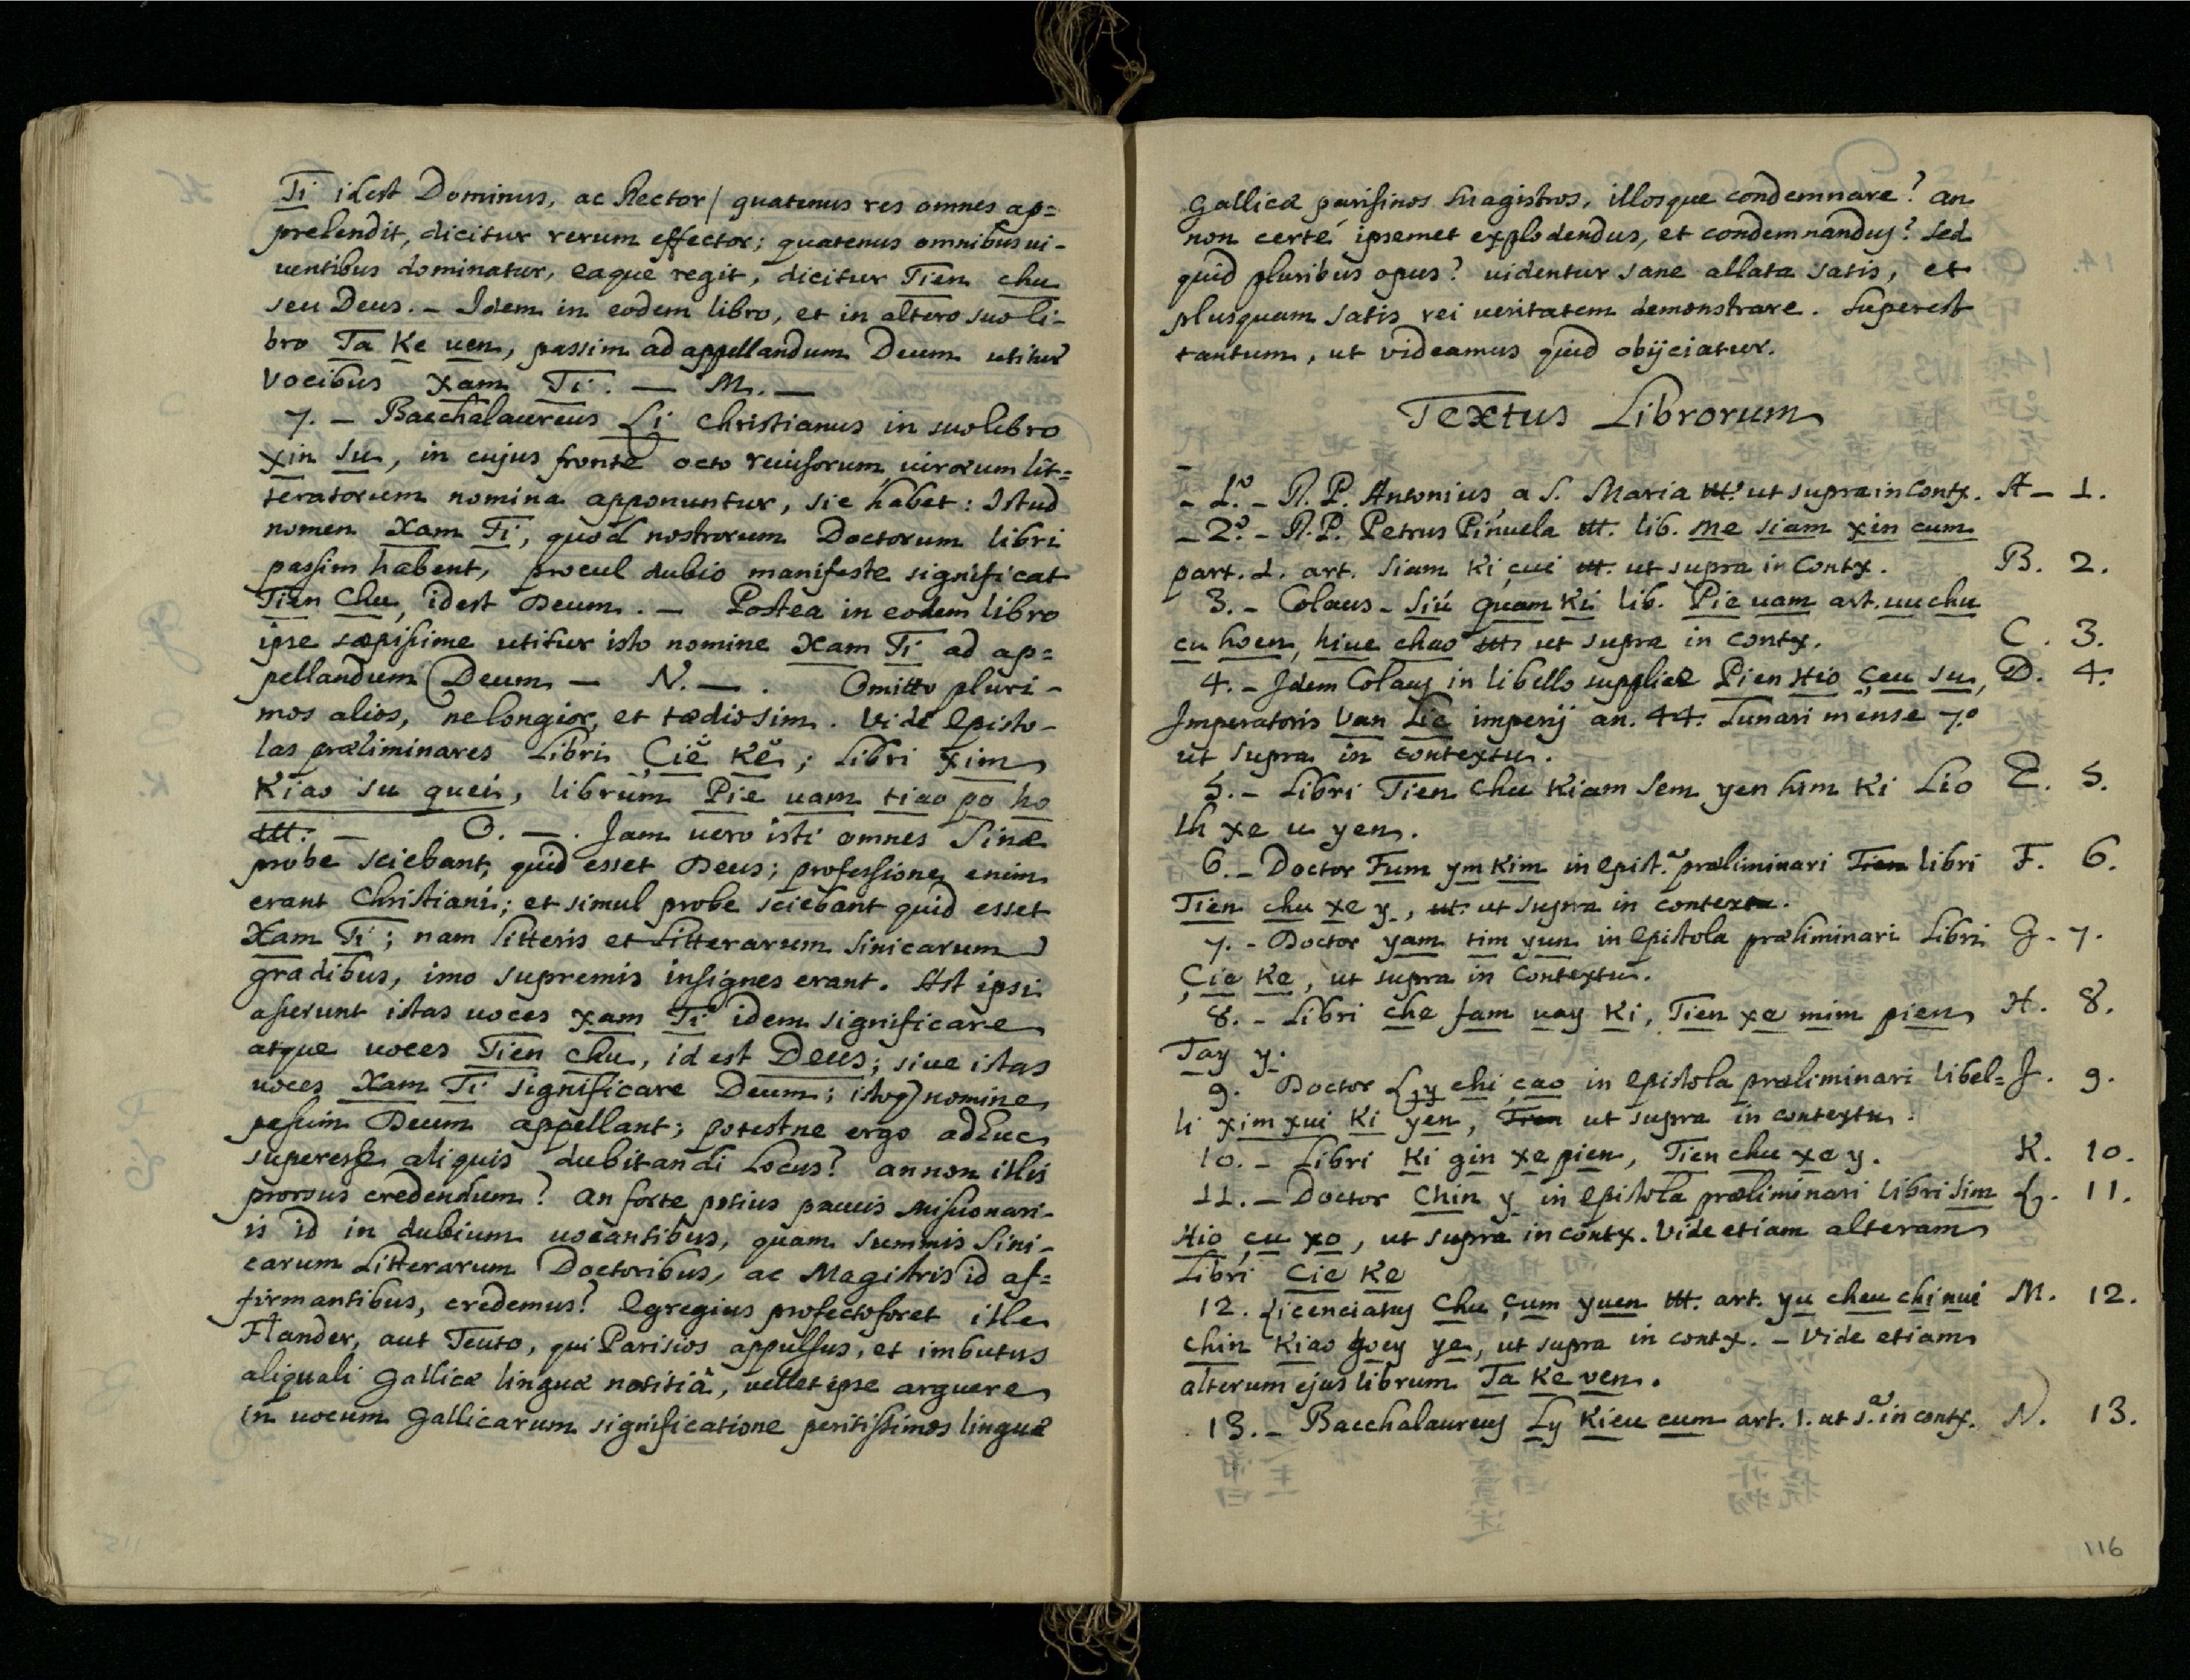 Ti idest Dominus, ac Rector / quatenus res omnes ap=
prehendit, dicitur rerum effector; quatenus omnibus ui-
uentibus dominatur, eaque regit, dicitur Tien chu
seu Deus. - Idem in eodem libro, et in altero suo li-
bro Ta Ke uen, passim ad appellandum Deum utitur
vocibus Xam Ti. — M. —
7. - Bacchalaureus Li Christianus in suo libro
xin su, in cujus fronte octo reuisorum uirorum lit=
teratorum nomina apponuntur, sic habet: Istud
nomen Xam Ti, quod nostrorum Doctorum libri
passim habent, procul dubio manifeste significat
Tien Chu, idest Deum. - Postea in eodem libro
ipse sæpissime utitur isto nomine Xam Ti ad ap=
pellandum Deum — N. —. Omitto pluri-
mos alios, ne longior, et tædio sim. Vide Episto-
las præliminares Libri Çiĕ Kĕ; Libri xim
Kiao su quei, librum Pie uam tiao po ho
ttt. — O. —. Jam uero isti omnes Sinæ
probe sciebant, quid esset Deus; professione enim
erant Christiani; et simul probe sciebant quid esset
Xam Ti; nam litteris et Litterarum Sinicarum
gradibus, imo supremis insignes erant. Ast ipsi
asserunt istas uoces Xam Ti idem significare
atque uoces Tien chu, id est Deus; siue istas
uoces Xam Ti significare Deum; istoq) nomine
passim Deum appellant; potestne ergo adhuc
superesse aliquis dubitandi Locus? annon illis
prorsus credendum? an forte potius paucis Missionari-
is id in dubium uocantibus, quam summis Sini-
carum Litterarum Doctoribus, ac Magistris id af=
firmantibus, credemus? Egregius profecto foret ille
Flander, aut Teuto, qui Parisios appulsus, et imbutus
aliquali Gallicæ linguæ notitiâ, uellet ipse arguere
in uocum Gallicarum significatione peritissimos linguæ
Gallicæ parisinos Magistros, illosque condemnare? an
non certè ipsemet explodendus, et condemnandus? Sed
quid pluribus opus? uidentur sane allata satis, et
plusquam satis rei ueritatem demonstrare. Superest
tantum, ut videamus quid obijciatur.
Textus Librorum
- 1.º - R. P. Antonius a S. Maria ttt. ut supra in Contx. A - 1.
- 2.º - R. P. Petrus Piñuela ttt. lib. me siam xin cum
part. 1. art. Siam Ki çui ttt. ut supra in Contx. B. 2.
3. - Colaus - Siú quam Ki lib. Pie uam art. uu chu
cu hoen, hiue chao ttt. ut supra in contx. C. 3.
4. - Idem Colaus in libello supplice Pien Hio çeu su, D. 4.
Imperatoris Van Lie imperij an. 44. Lunari mense 7.º
ut supra in contextu.
5. - Libri Tien Chu Kiam Sem yen him Ki Lio E. 5.
lh xe u yen.
6. - Doctor Fum ym Kim in epist.ª præliminari Tien libri F. 6.
Tien chu xe y, ttt. ut supra in contextu.
7. - Doctor yam tim yun in Epistola præliminari Libri G. 7.
Çie Ke, ut supra in Contextu.
8. - Libri che fam uay Ki, Tien xe mim pien H. 8.
Tay y.
9. Doctor Ly chi çao in Epistola præliminari libel= J. 9.
li xim xui Ki yen, Tien ut supra in contextu.
10. - Libri Ki gin xe pien, Tien chu xe y. K. 10.
11. - Doctor Chin y in Epistola præliminari Libri Sim L. 11.
Hio çu xo, ut supra in contx. Vide etiam alteram
Libri Cie Ke
12. Licenciatus Chu çum yuen ttt. art. yu cheu chi nui M. 12.
chin Kiao goey ye, ut supra in contx. - Vide etiam
alterum ejus librum Ta Ke ven.
13. - Bacchalaureus Ly Kieu cum art. 1. ut s.ª in contx. N. 13.
116